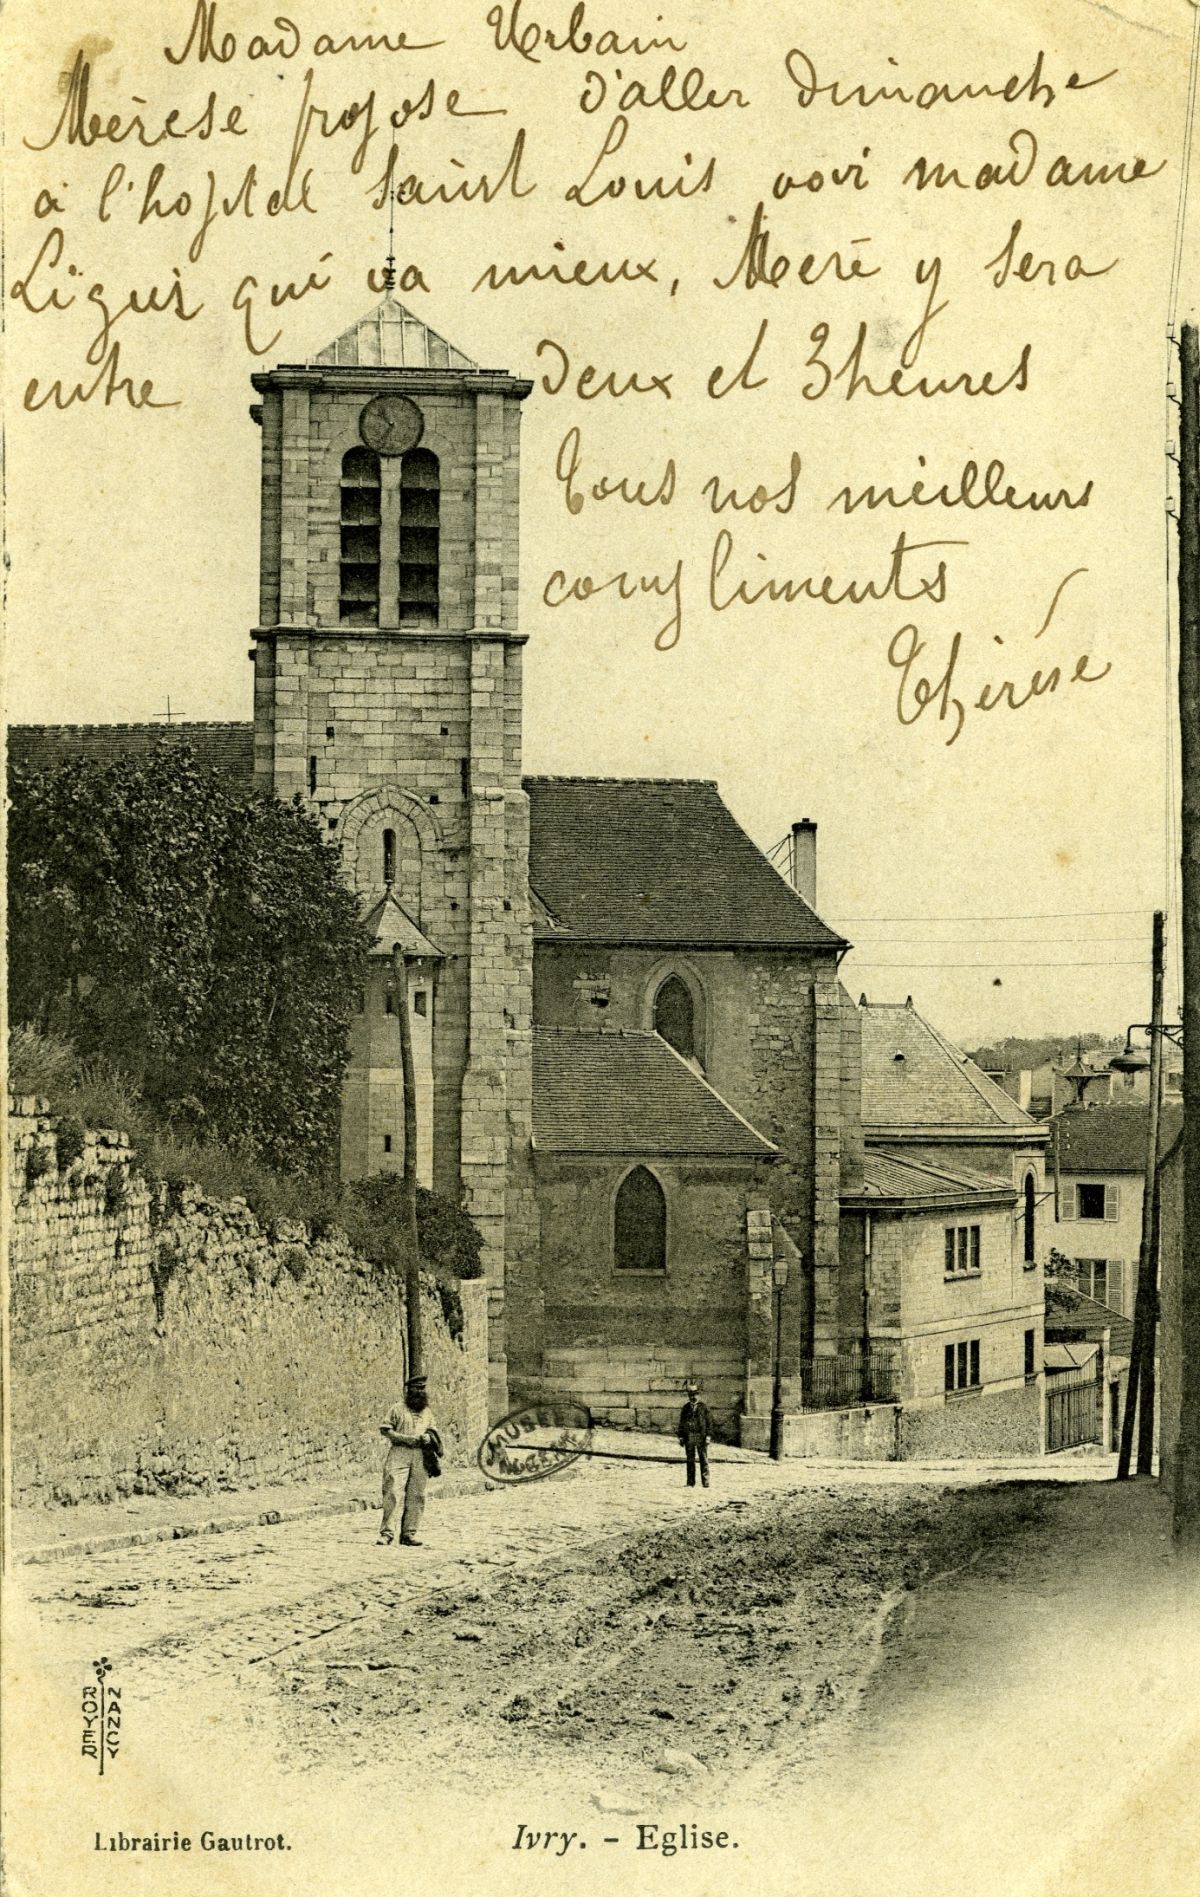 Madame Urbain
Mérese propose d'aller Dimanche
à l'hopital Saint Louis voir madame
Liguis qui va mieux, Meré y sera
entre deux et 3 heures
Tous nos meilleurs
compliments
Thérèse
MUSEE
NOGENT
ROYER
NANCY
Librairie Gautrot.
Ivry. - Eglise.